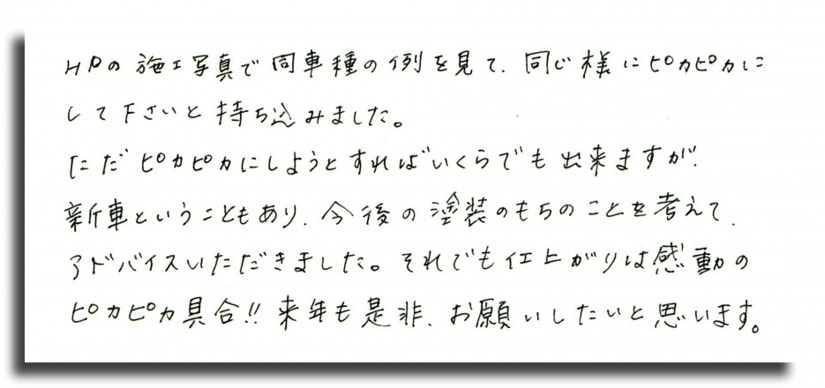 HPの施工写真で同車種の例を見て、同じ様にピカピカに
して下さいと持ち込みました。
ただピカピカにしようとすればいくらでも出来ますが、
新車ということもあり、今後の塗装のもちのことを考えて、
アドバイスいただきました。それでも仕上がりは感動の
ピカピカ具合!! 来年も是非、お願いしたいと思います。